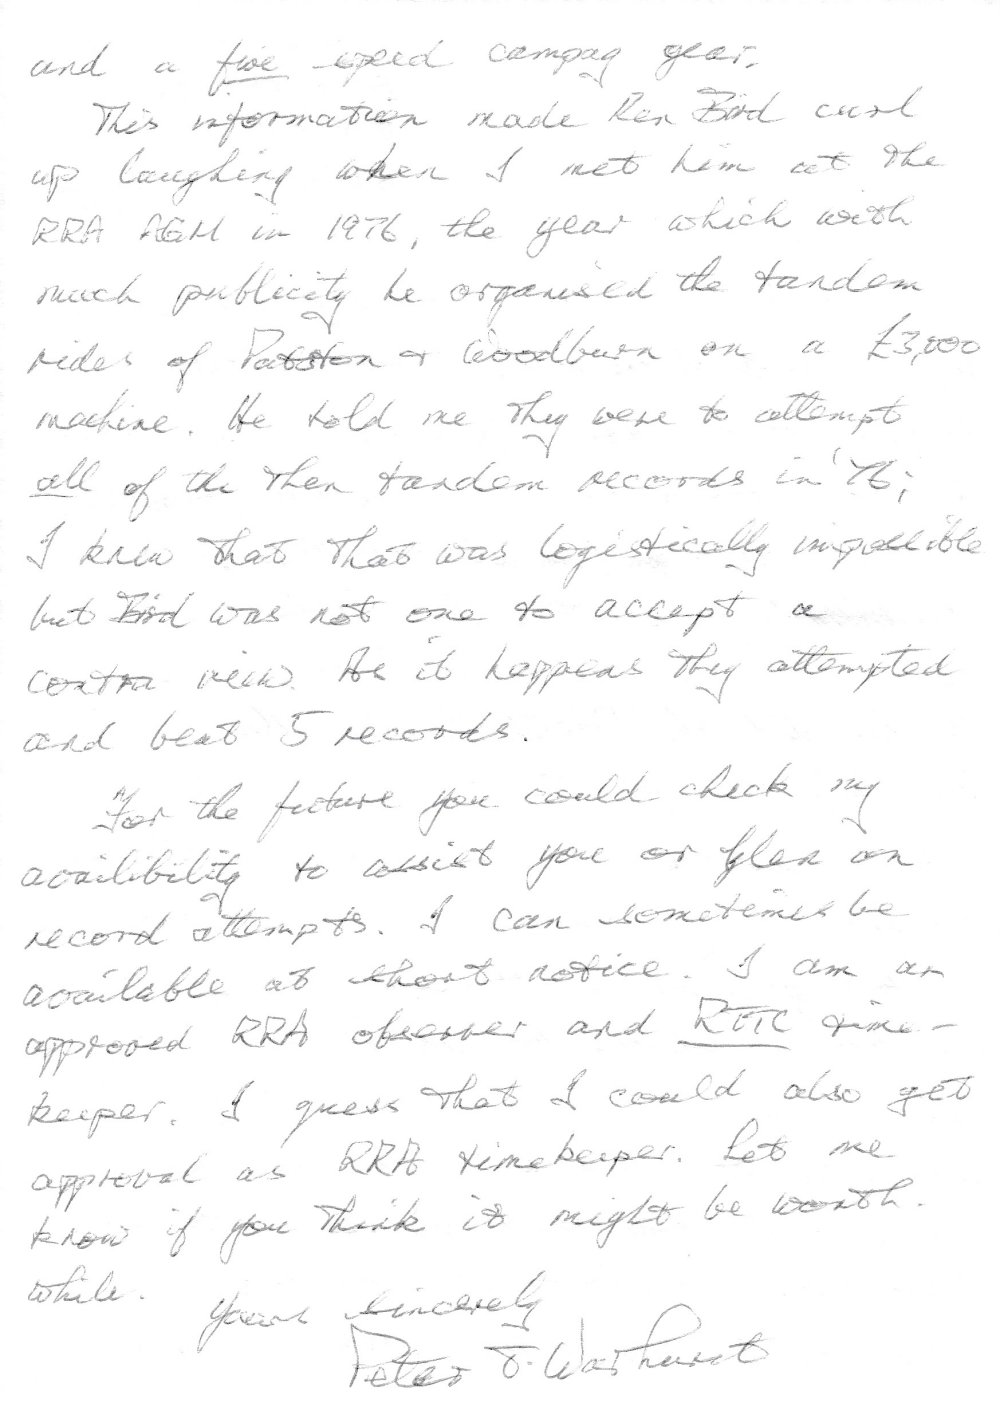 and a five speed campag gear.
This information made Ken Bird curl
up laughing when I met him at the
RRA AGM in 1976, the year which with
much publicity he organised the tandem
rides of Patston + Woodburn on a £3,000
machine. He told me they were to attempt
all of the then tandem records in '76;
I knew that that was logistically impossible
but Bird was not one to accept a
contra view. As it happens they attempted
and beat 5 records.
For the future you could check my
availibility to assist you or Glen on
record attempts. I can sometimes be
available at short notice. I am an
approved RRA observer and RTTC time-
keeper. I guess that I could also get
approval as RRA timekeeper. Let me
know if you think it might be worth.
while.
Yours sincerely
Peter T. Warhurst